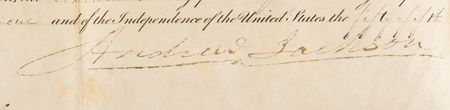 one and of the Independence of the United States the fifty fifth
Andrew Jackson